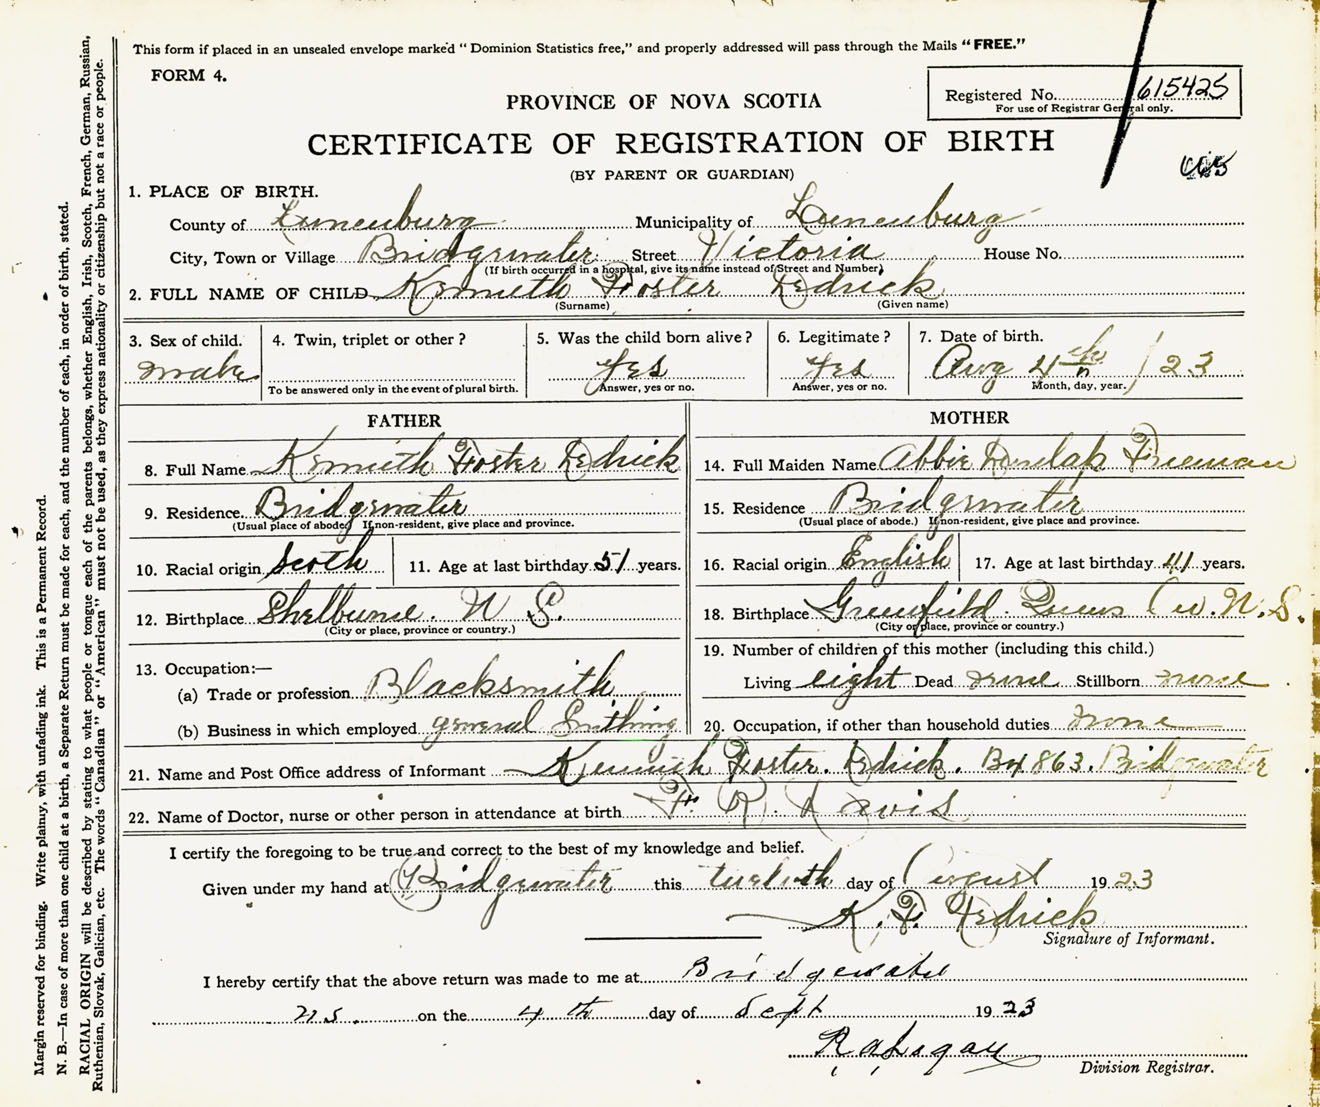 This form if placed in an unsealed envelope marked "Dominion Statistics free," and properly addressed will pass through the Mails "FREE."
FORM 4.
Registered No. 615425
For use of Registrar General only.
PROVINCE OF NOVA SCOTIA
CERTIFICATE OF REGISTRATION OF BIRTH
(BY PARENT OR GUARDIAN)
1. PLACE OF BIRTH.
County of Lunenburg Municipality of Lunenburg
City, Town or Village Bridgewater Street Victoria House No.
(If birth occurred in a hospital, give its name instead of Street and Number)
2. FULL NAME OF CHILD Kenneth Foster Dedrick
(Surname) (Given name)
3. Sex of child. 4. Twin, triplet or other? 5. Was the child born alive? 6. Legitimate? 7. Date of birth.
male Yes Yes Aug 4th /23
To be answered only in the event of plural birth. Answer, yes or no. Answer, yes or no. Month, day, year.
FATHER MOTHER
8. Full Name Kenneth Foster Dedrick 14. Full Maiden Name Abbie Dunlap Freeman
9. Residence Bridgewater 15. Residence Bridgewater
(Usual place of abode) If non-resident, give place and province. (Usual place of abode.) If non-resident, give place and province.
10. Racial origin Scoth 11. Age at last birthday 51 years. 16. Racial origin English 17. Age at last birthday 41 years.
12. Birthplace Shelburne. N S. 18. Birthplace Greenfield. Queens Co. N.S.
(City or place, province or country.) (City or place, province or country.)
13. Occupation:— 19. Number of children of this mother (including this child.)
(a) Trade or profession Blacksmith Living eight Dead none Stillborn none
(b) Business in which employed general Smithing 20. Occupation, if other than household duties none
21. Name and Post Office address of Informant Kenneth Foster Dedrick. Bx 863. Bridgewater
22. Name of Doctor, nurse or other person in attendance at birth F. R. Davis
I certify the foregoing to be true and correct to the best of my knowledge and belief.
Given under my hand at Bridgewater this twelvth day of August 1923
K. F. Dedrick
Signature of Informant.
I hereby certify that the above return was made to me at Bridgewater
N.S. on the 4th day of Sept 1923
Division Registrar.
Margin reserved for binding. Write plainly, with unfading ink. This is a Permanent Record.
N. B.—In case of more than one child at a birth, a Separate Return must be made for each, and the number of each, in order of birth, stated.
RACIAL ORIGIN will be described by stating to what people or tongue each of the parents belongs, whether English, Irish, Scotch, French, German, Russian,
Ruthenian, Slovak, Galician, etc. The words "Canadian" or "American" must not be used, as they express nationality or citizenship but not a race or people.